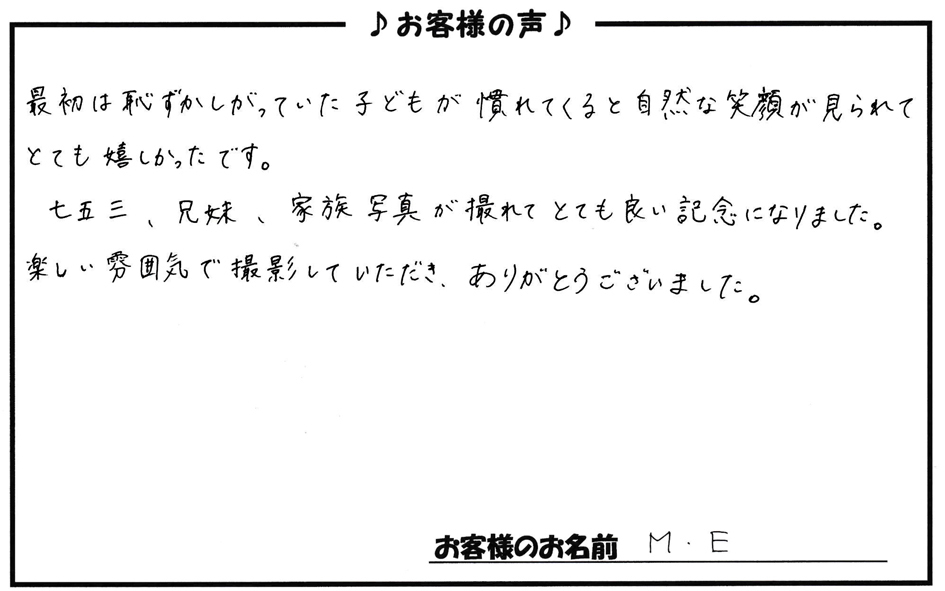 ♪お客様の声♪
最初は恥ずかしがっていた子どもが慣れてくると自然な笑顔が見られて
とても嬉しかったです。
七五三、兄妹、家族写真が撮れてとても良い記念になりました。
楽しい雰囲気で撮影していただき、ありがとうございました。
お客様のお名前 M・E